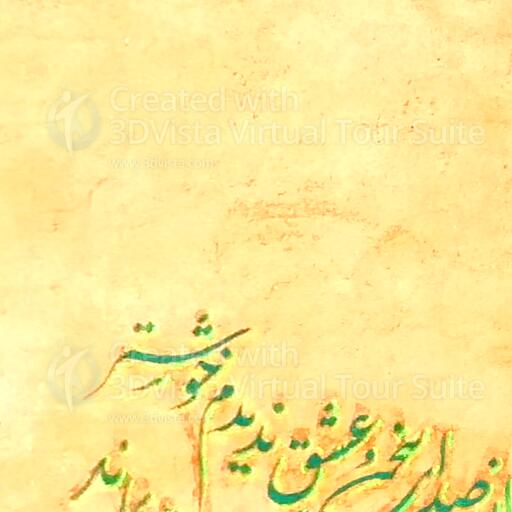 Created with
3DVista Virtual Tour Suite
www.3dvista.com
Created with
3DVista Virtual Tour Suite
www.3dvista.com
از صدای سخن عشق ندیدم خوشتر